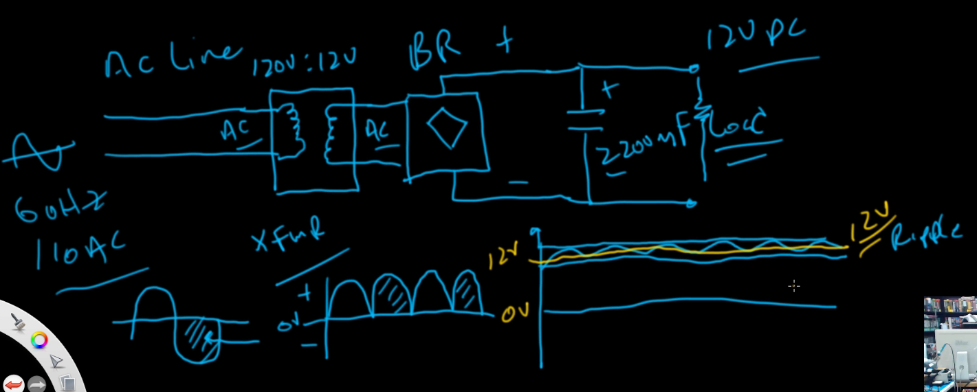 AC Line
120V:12V
BR
+
12V DC
+
AC
AC
2200mF
Load
-
60Hz
110AC
XFmR
+
0V
-
12V
0V
12V
Ripple